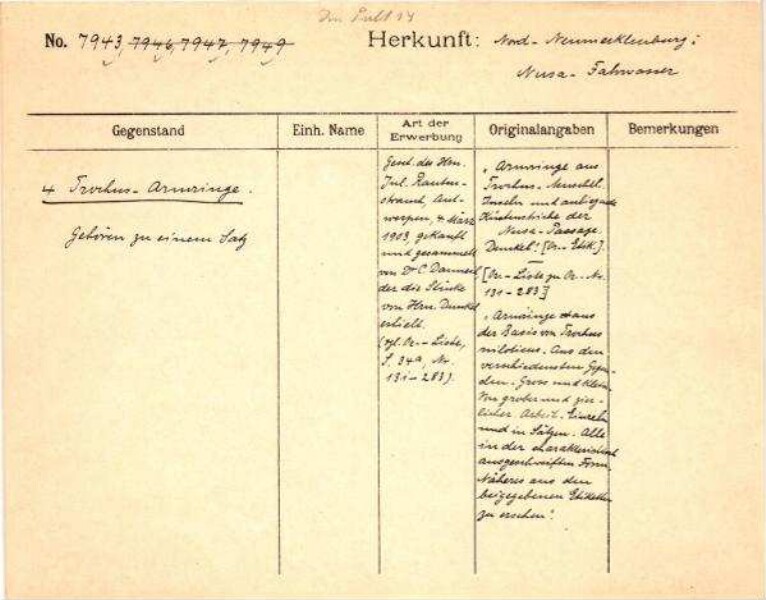 Im Pult 14
No. 7943, 7946, 7947, 7949 Herkunft: Nord-Neumecklenburg;
Nusa-Fahrwasser
Gegenstand Einh. Name Art der Erwerbung Originalangaben Bemerkungen
4 Trochus-Armringe.
Gehören zu einem Satz
Gesch. des Hrn.
Jul. Rauten-
strauch, Ant-
werpen, 4. März
1903, gekauft
und gesammelt
von Dr C.
der die Stücke
von Hrn. Dunkel
erhielt.
(vgl. Or.-Liste,
S. 34a, Nr.
131-283).
„Armringe aus
Trochus-Muschel.
Inseln und anliegende
Küstenstriche der
Nusa-Passage.
Dunkel". [Or.-Etik.].
[Or.-Liste zu Or.-Nr.
131-283]
„Armringe aus
der Basis von Trochus
niloticus. Aus den
verschiedensten Gegen-
den. Gross und klein.
Von grober und zier-
licher Arbeit. Einzeln
und in Sätzen. Alle
in der charakteristisch
ausgeschweiften Form.
Näheres aus den
beigegebenen Etiketten
zu ersehen".